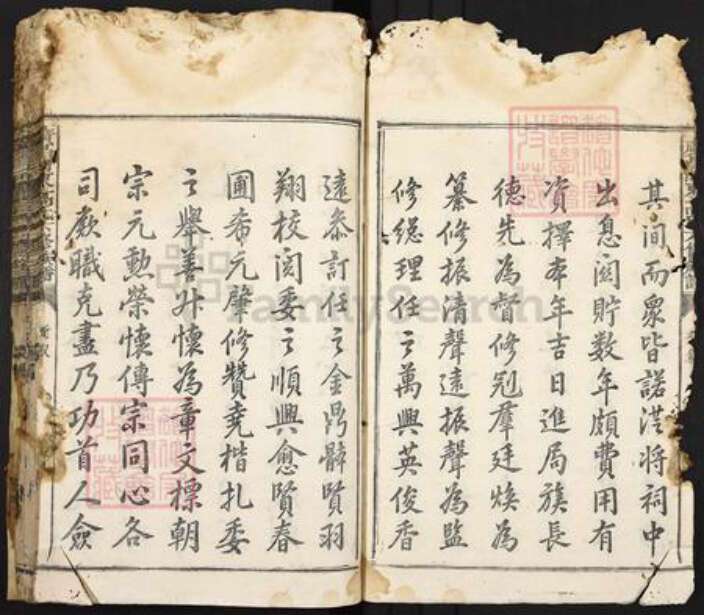 其間而衆皆諾洪將祠中
出息闔貯數年頗費用有
資擇本年吉日進局族長
德先為督修冠羣廷煥為
纂修振清聲遠振聲為監
修總理任之萬興英俊香
遠叅訂任之金鼎群賢羽
翔校閱委之順興愈賢春
圃希元肇修贊堯楷扎委
之舉善升懷為章文標朝
宗元勲榮懷傳宗同心各
司厥職克盡乃功首人僉
FamilySearch